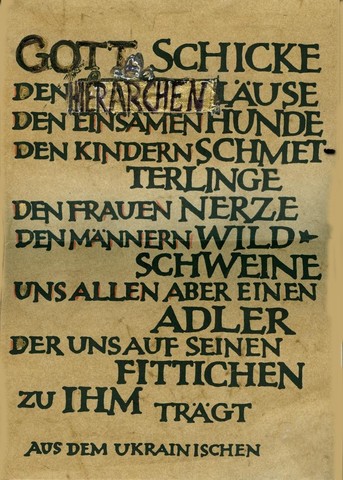 GOTT SCHICKE
DEN HIERARCHEN LÄUSE
DEN EINSAMEN HUNDE
DEN KINDERN SCHMET-
TERLINGE
DEN FRAUEN NERZE
DEN MÄNNERN WILD
SCHWEINE
UNS ALLEN ABER EINEN
ADLER
DER UNS AUF SEINEN
FITTICHEN
ZU IHM TRÄGT
AUS DEM UKRAINISCHEN